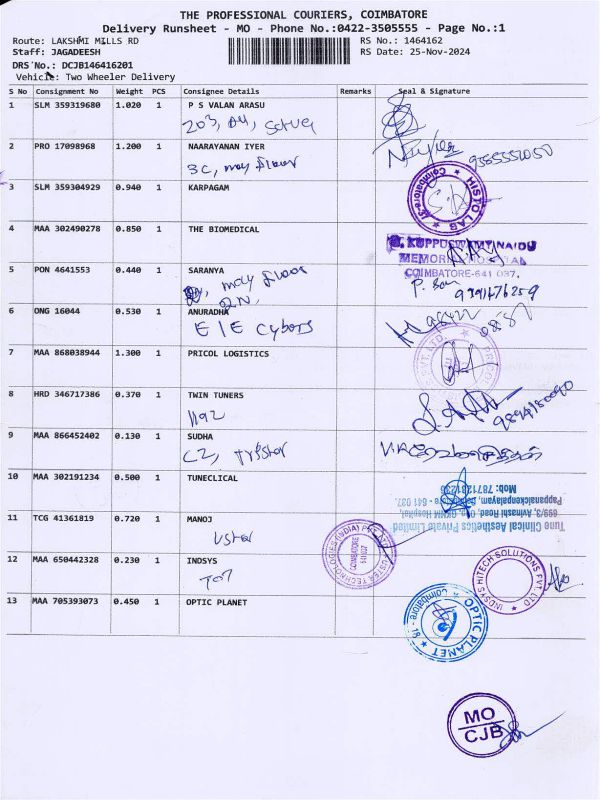 THE PROFESSIONAL COURIERS, COIMBATORE
Delivery Runsheet - MO - Phone No.:0422-3505555 - Page No.:1
Route: LAKSHMI MILLS RD
RS No.: 1464162
Staff: JAGADEESH
RS Date: 25-Nov-2024
DRS No.: DCJB146416201
Vehicle: Two Wheeler Delivery
S No Consignment No Weight PCS Consignee Details Remarks Seal & Signature
1 SLM 359319680 1.020 1 P S VALAN ARASU
203,
2 PRO 17098968 1.200 1 NAARAYANAN IYER
3C, may floor
3 SLM 359304929 0.940 1 KARPAGAM
HISTO LAB
Coimbatore
4 MAA 302490278 0.850 1 THE BIOMEDICAL
G. KUPPUSWAMY NAIDU
MEMORIAL HOSPITAL
COIMBATORE-641 037.
5 PON 4641553 0.440 1 SARANYA
may floor
6 ONG 16044 0.530 1 ANURADHA
E1E Cybers
7 MAA 868038944 1.300 1 PRICOL LOGISTICS
8 HRD 346717386 0.370 1 TWIN TUNERS
1192
9 MAA 866452402 0.130 1 SUDHA
C2, Tristar
10 MAA 302191234 0.500 1 TUNECLICAL
Tune Clinical Aesthetics Private Limited
699/3, Avinashi Road, Opp. GKNM Hospital,
Pappanaickenpalayam, Coimbatore - 641 037.
11 TCG 41361819 0.720 1 MANOJ
Uster
USTER TECHNOLOGIES (INDIA) PVT LTD
COIMBATORE
12 MAA 650442328 0.230 1 INDSYS
INDSYS HITECH SOLUTIONS PVT LTD
13 MAA 705393073 0.450 1 OPTIC PLANET
OPTIC PLANET
Coimbatore - 18
MO
CJB